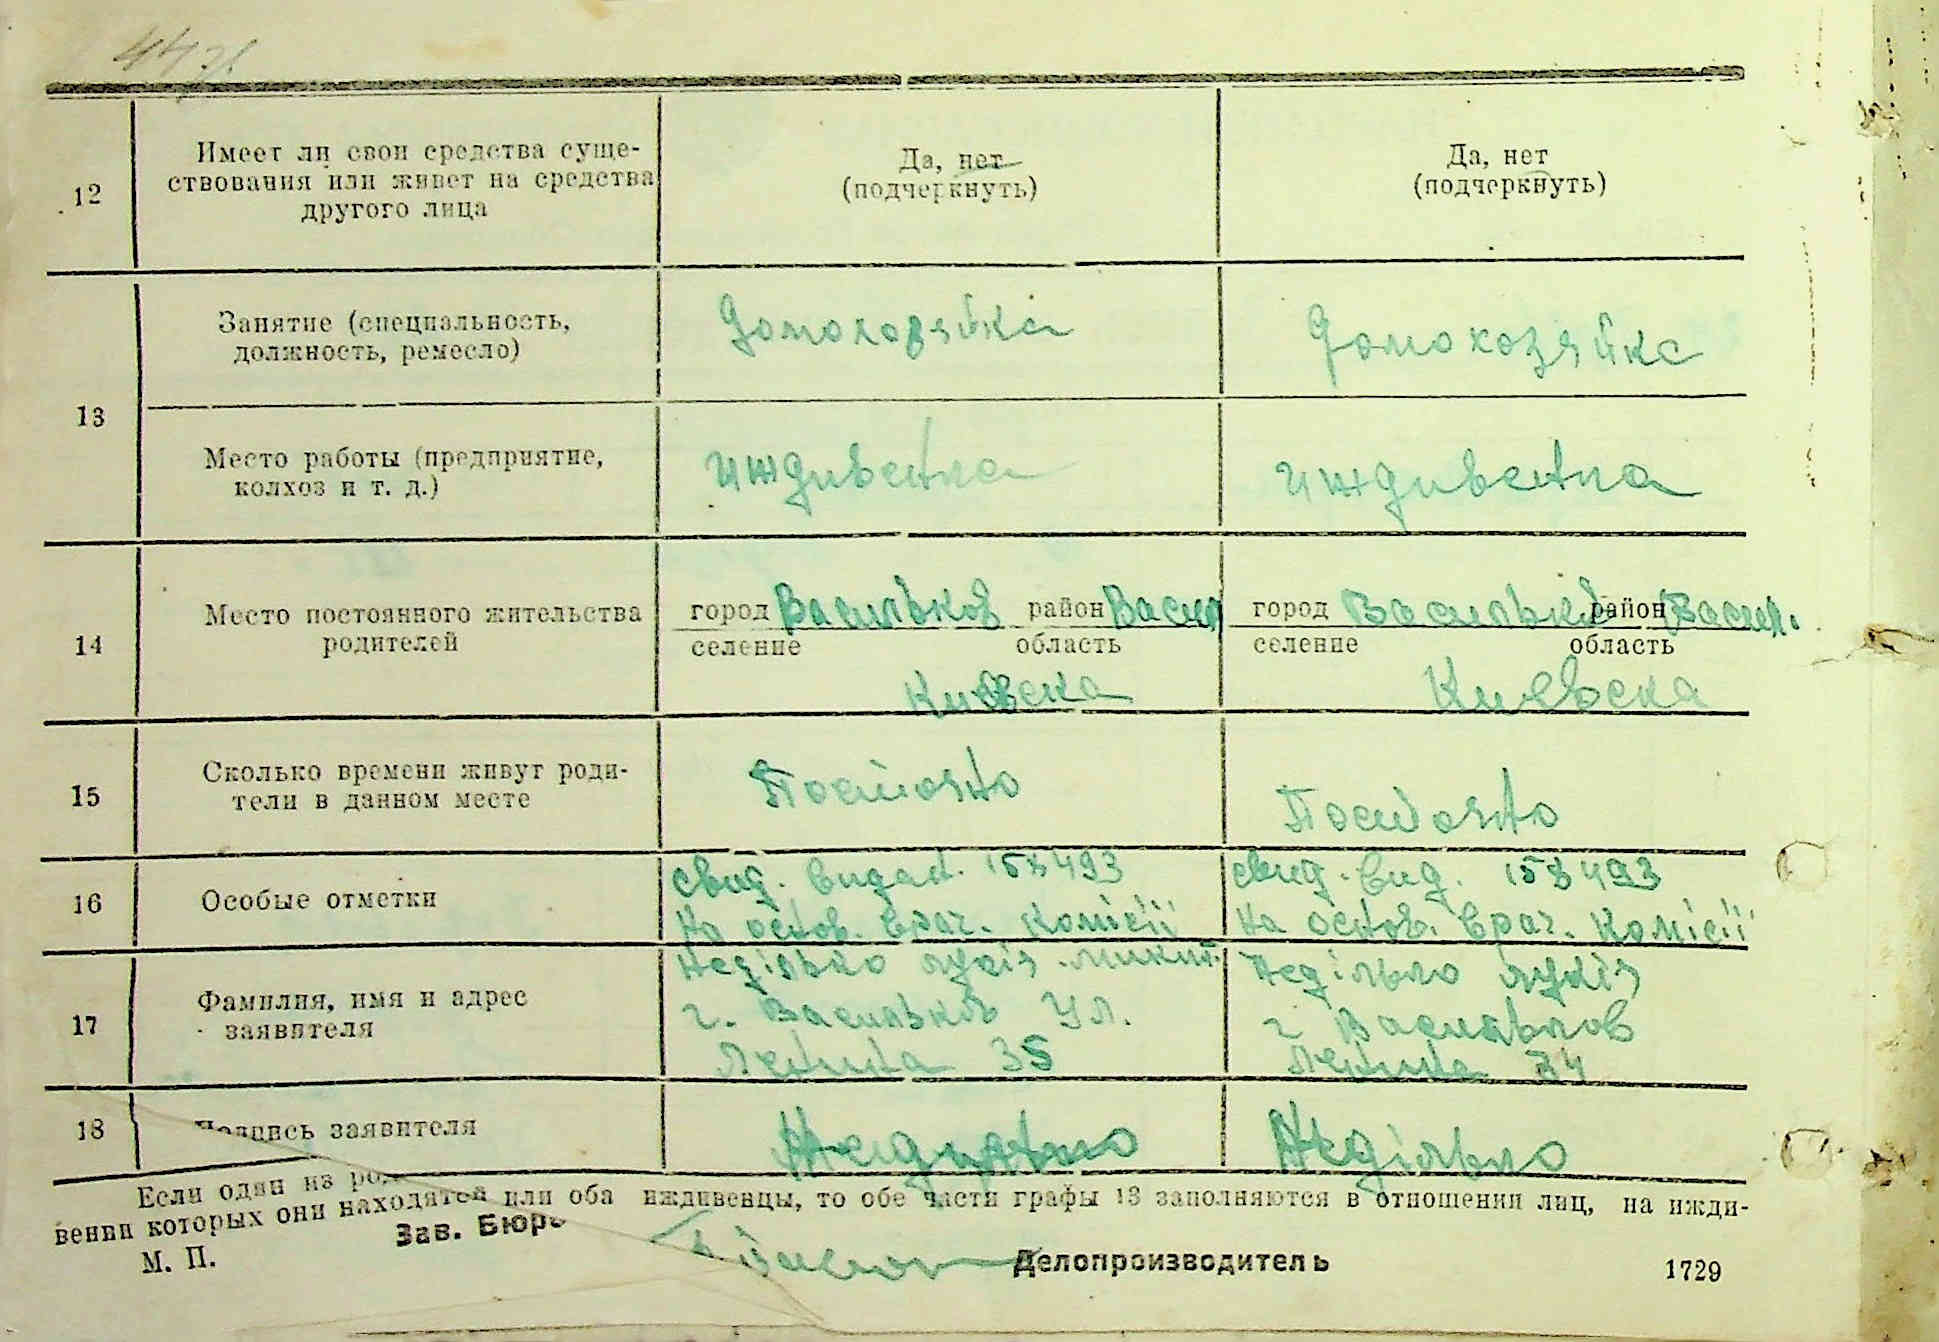 12
Имеет ли свои средства суще-
ствования или живет на средства
другого лица
Да, нет
(подчеркнуть)
Да, нет
(подчеркнуть)
13
Занятие (специальность,
должность, ремесло)
Домохозяйка
Домохозяйка
Место работы (предприятие,
колхоз и т. д.)
иждивентка
иждивентка
14
Место постоянного жительства
родителей
город Васильков район Васил
селение область
Киевска
город Васильков район Васил.
селение область
Киевска
15
Сколько времени живут роди-
тели в данном месте
Постояно
Постояно
16
Особые отметки
свид. видан. 153493
На основ. врач. комісії
свид. вид. 153493
На основ. врач. комісії
17
Фамилия, имя и адрес
заявителя
Неділько Лукія Микит.
г. Васильков Ул.
Ленина 35
Неділько Лукія
г Васильков
Ленина 34
18
Подпись заявителя
Недилько
Неділько
Если один из ро
или оба иждивенцы, то обе части графы 13 заполняются в отношении лиц, на ижди-
вении которых они находятся
М. П.
Зав. Бюро
Делопроизводитель
1729